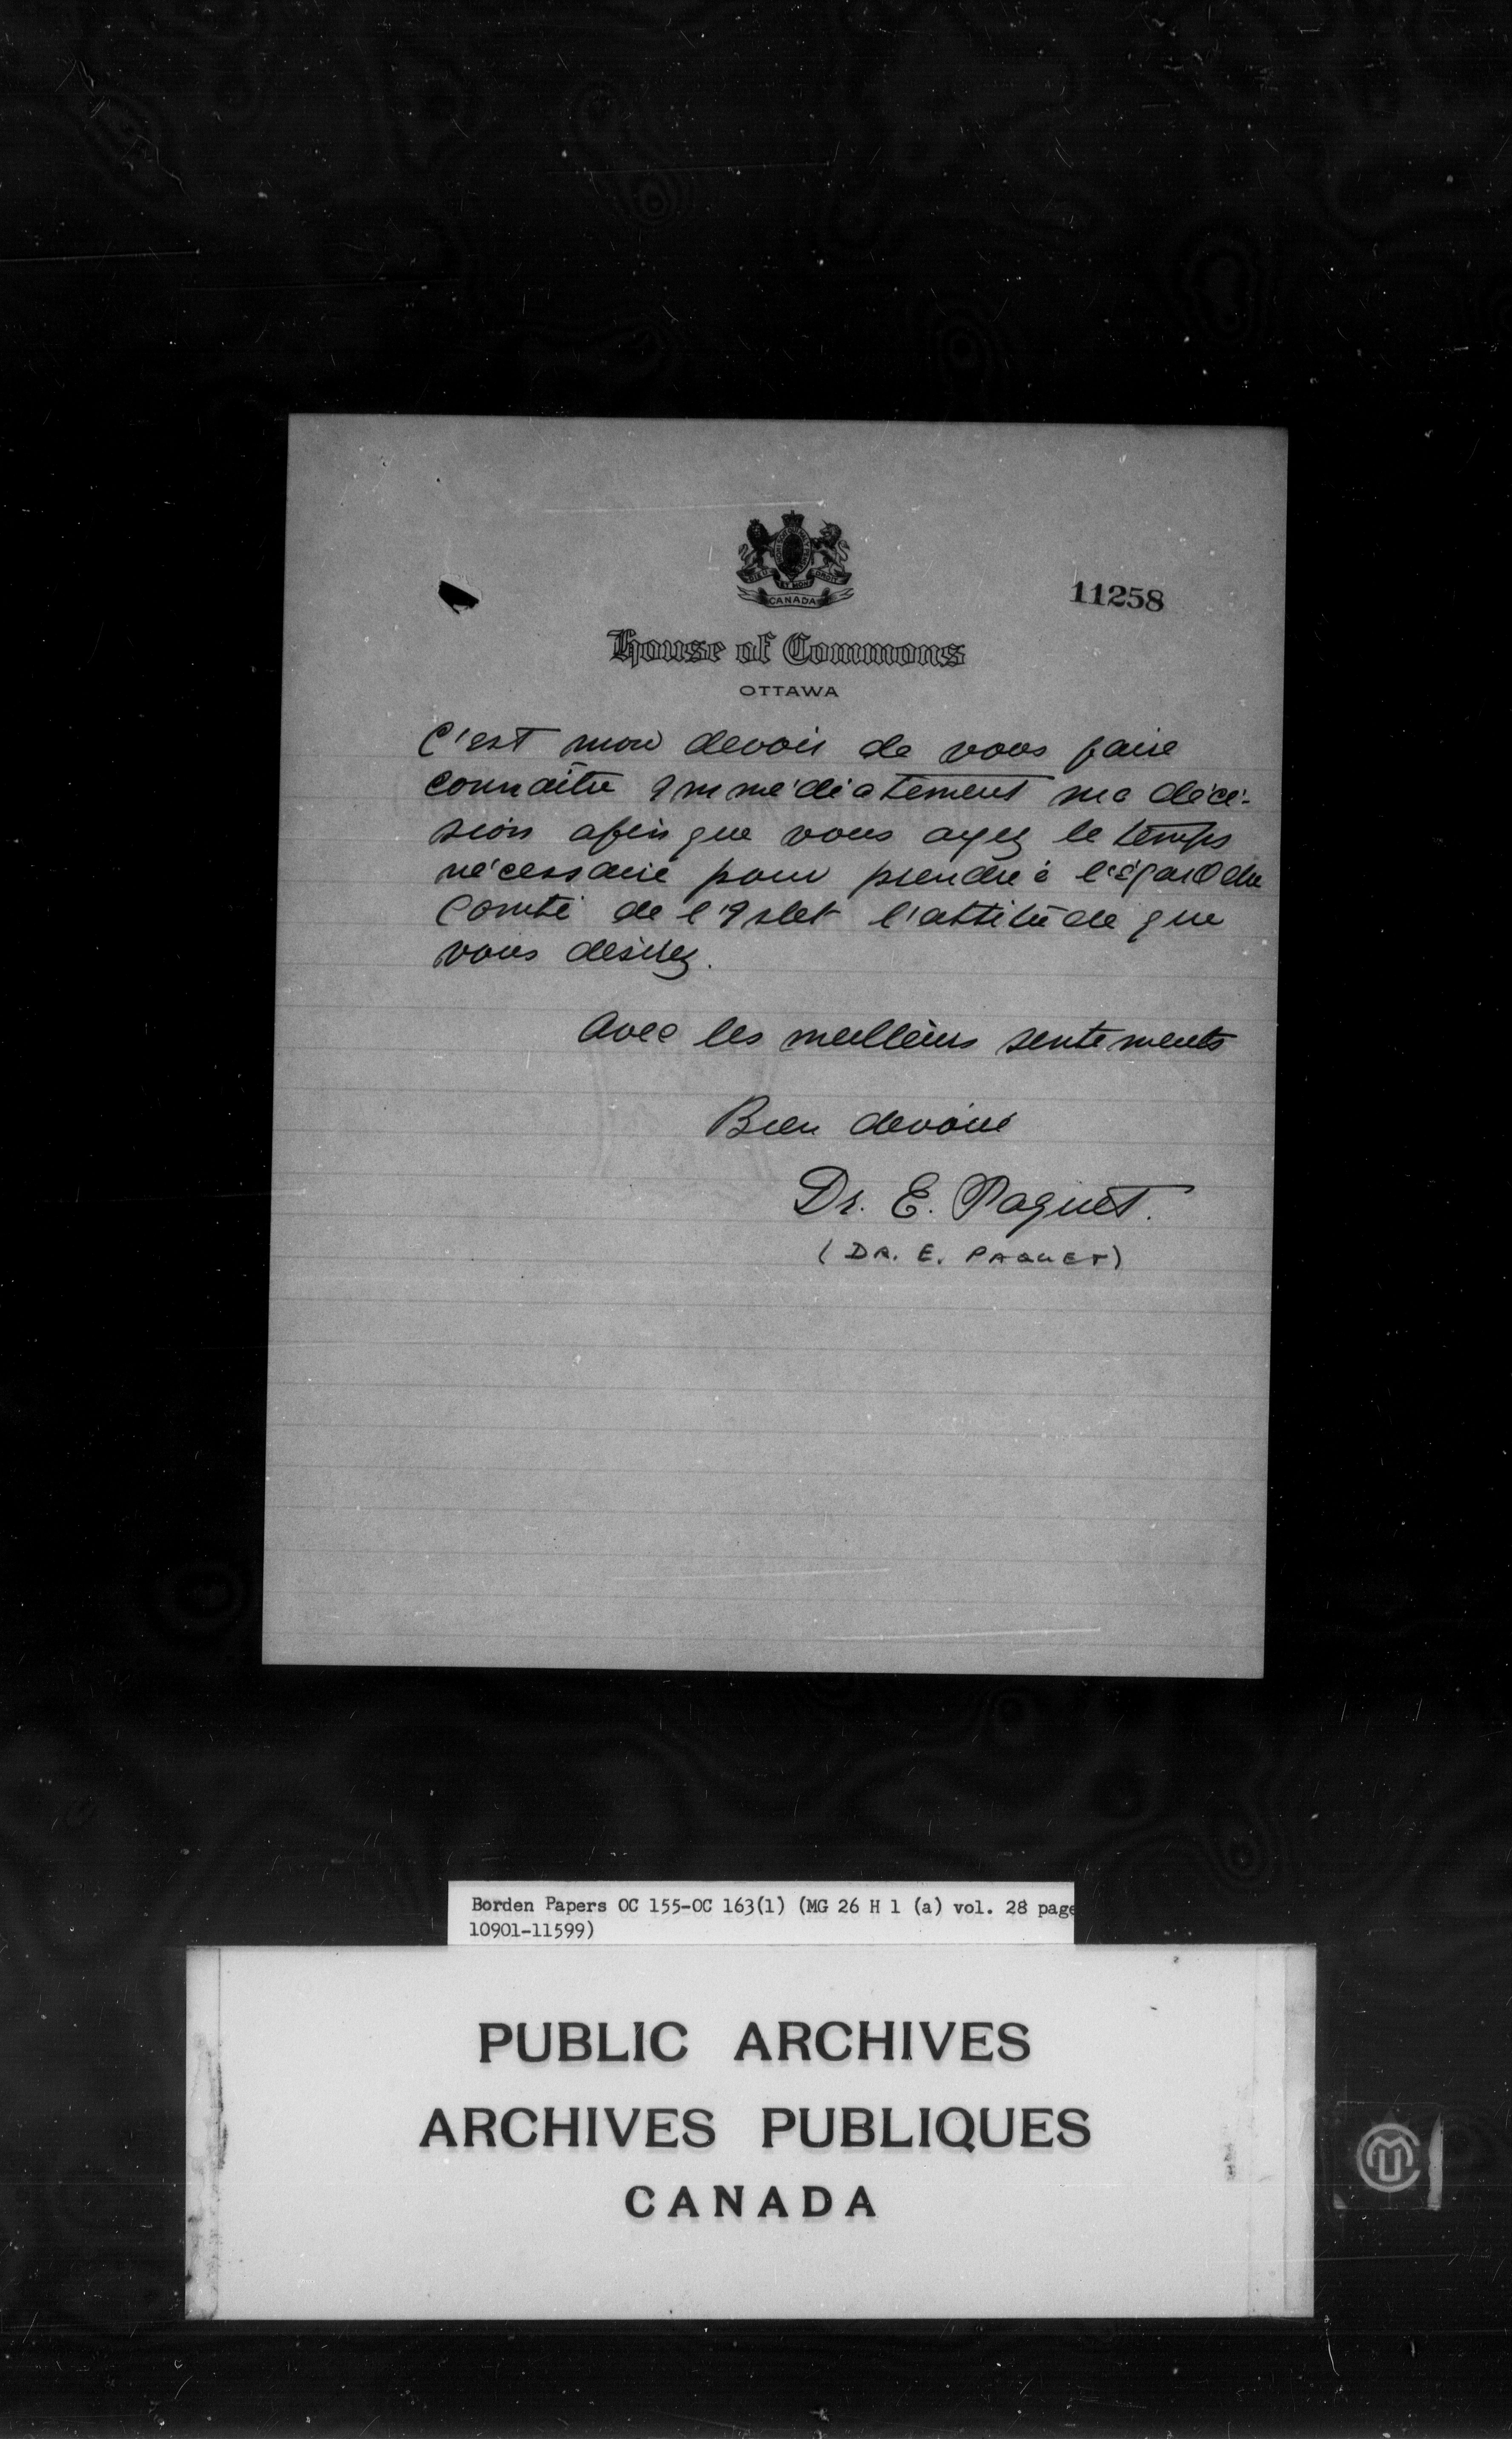 DIEU ET MON DROIT
CANADA
11258
House of Commons
OTTAWA
C'est mon devoir de vous faire
connaître immédiatement ma déci-
sion afin que vous ayez le temps
nécessaire pour prendre à l'égard du
Comté de l'Islet l'attitude que
vous désirez.
Avec les meilleurs sentiments
Bien dévoué
Dr. E. Paquet.
(DR. E. PAQUET)
Borden Papers OC 155-OC 163(1) (MG 26 H 1 (a) vol. 28 page
10901-11599)
PUBLIC ARCHIVES
ARCHIVES PUBLIQUES
CANADA